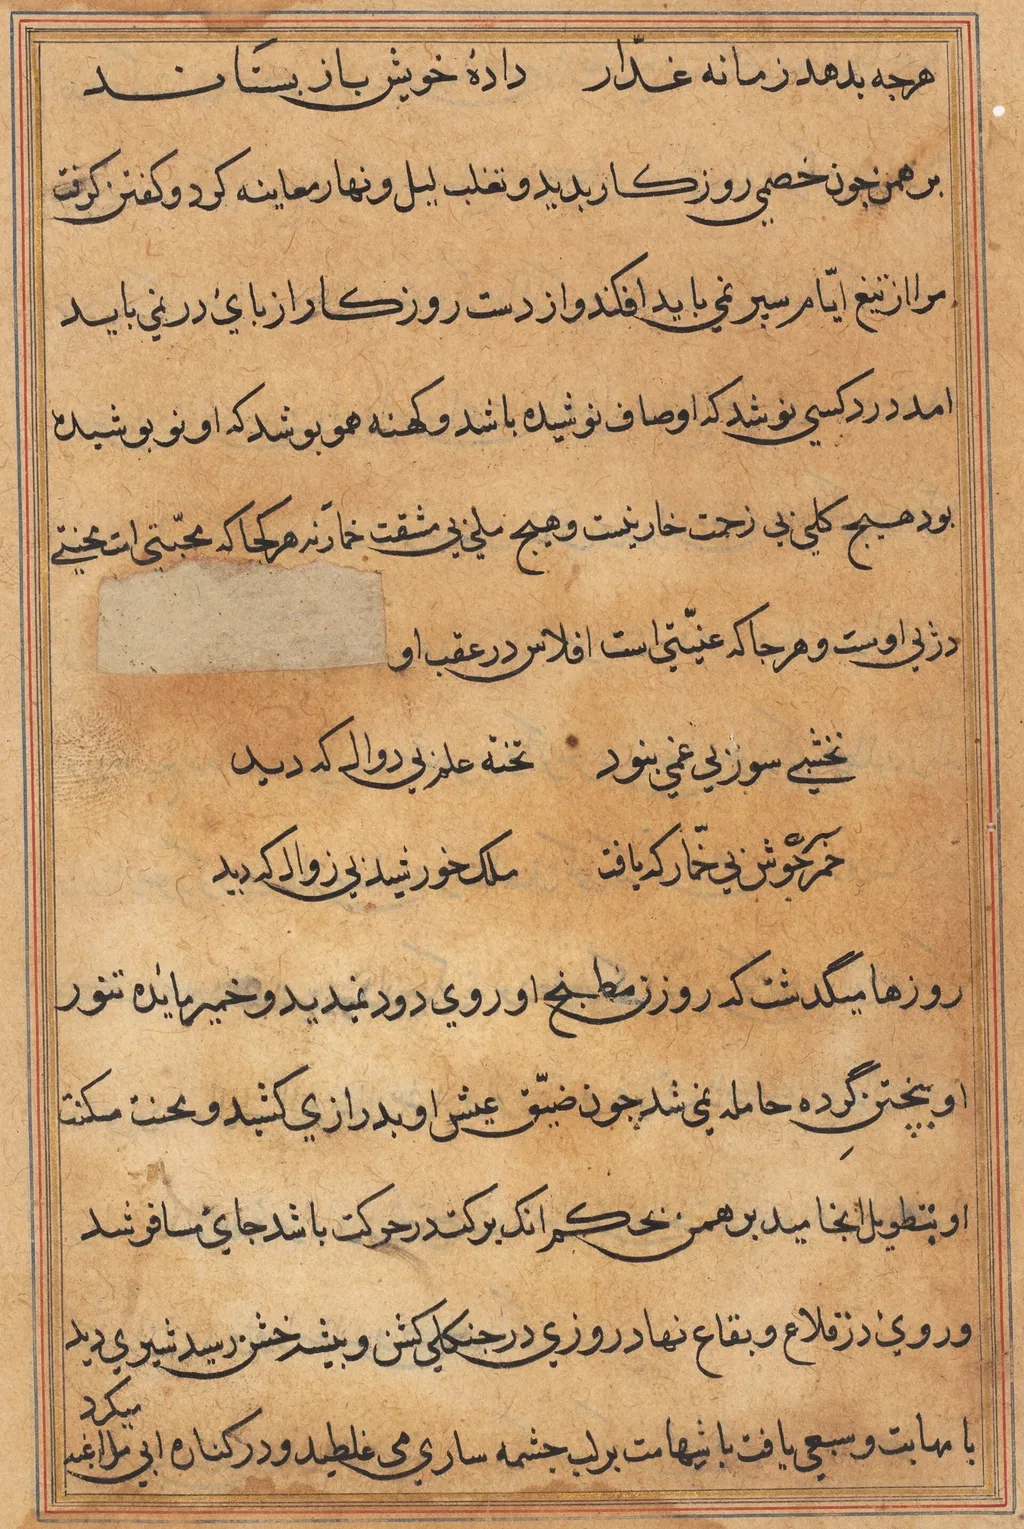 هرجه بدهد زمانه غدّار دادهٔ خویش باز بستاند
برهمن جون خصمی روز کار بدید و تغلب لیل و نهار معاینه کرد و کفتن کرفت
مرا از تیغ ایّام سپر نمی باید افکند و از دست روز کار از بایٔ در نمی باید
امد درد کسی نوشد که او صاف نوشیده باشد و کهنه همو بوشد که او نو بوشیده
بود هیج کلی بی زحمت خار نیست و هیج ملی بی مشقت خمار نه هر کجا که محبّتی است محنتی
در بی اوست و هر جا که غنیّتی است افلاس در عقب او
نخشبی سوز بی غمی بنود تخته علم بی دوال که دید
خمر جوش بی خمّار که یافت ملک خورشید بی زوال که دید
روزها میگدشت که روزن مطبخ او روی دود نمیدید و خمیر مایٔده تنور
او بپختن گرده حامله نمی شد جون ضیّق عیش او بدرازی کشید و محنت مسکنت
او بتطویل انجامید برهمن بحکم انک برکت در حرکت باشد جایٔ مسافر شد
و رویٔ در قلاع و بقاع نهاد روزی در جنکلی کشن و بیشهٔ خشن رسید شیری دید
با مهابت و سبعی یافت با شهامت بر لب جشمه ساری می غلطید و در کناره ابی مراغه
میکرد